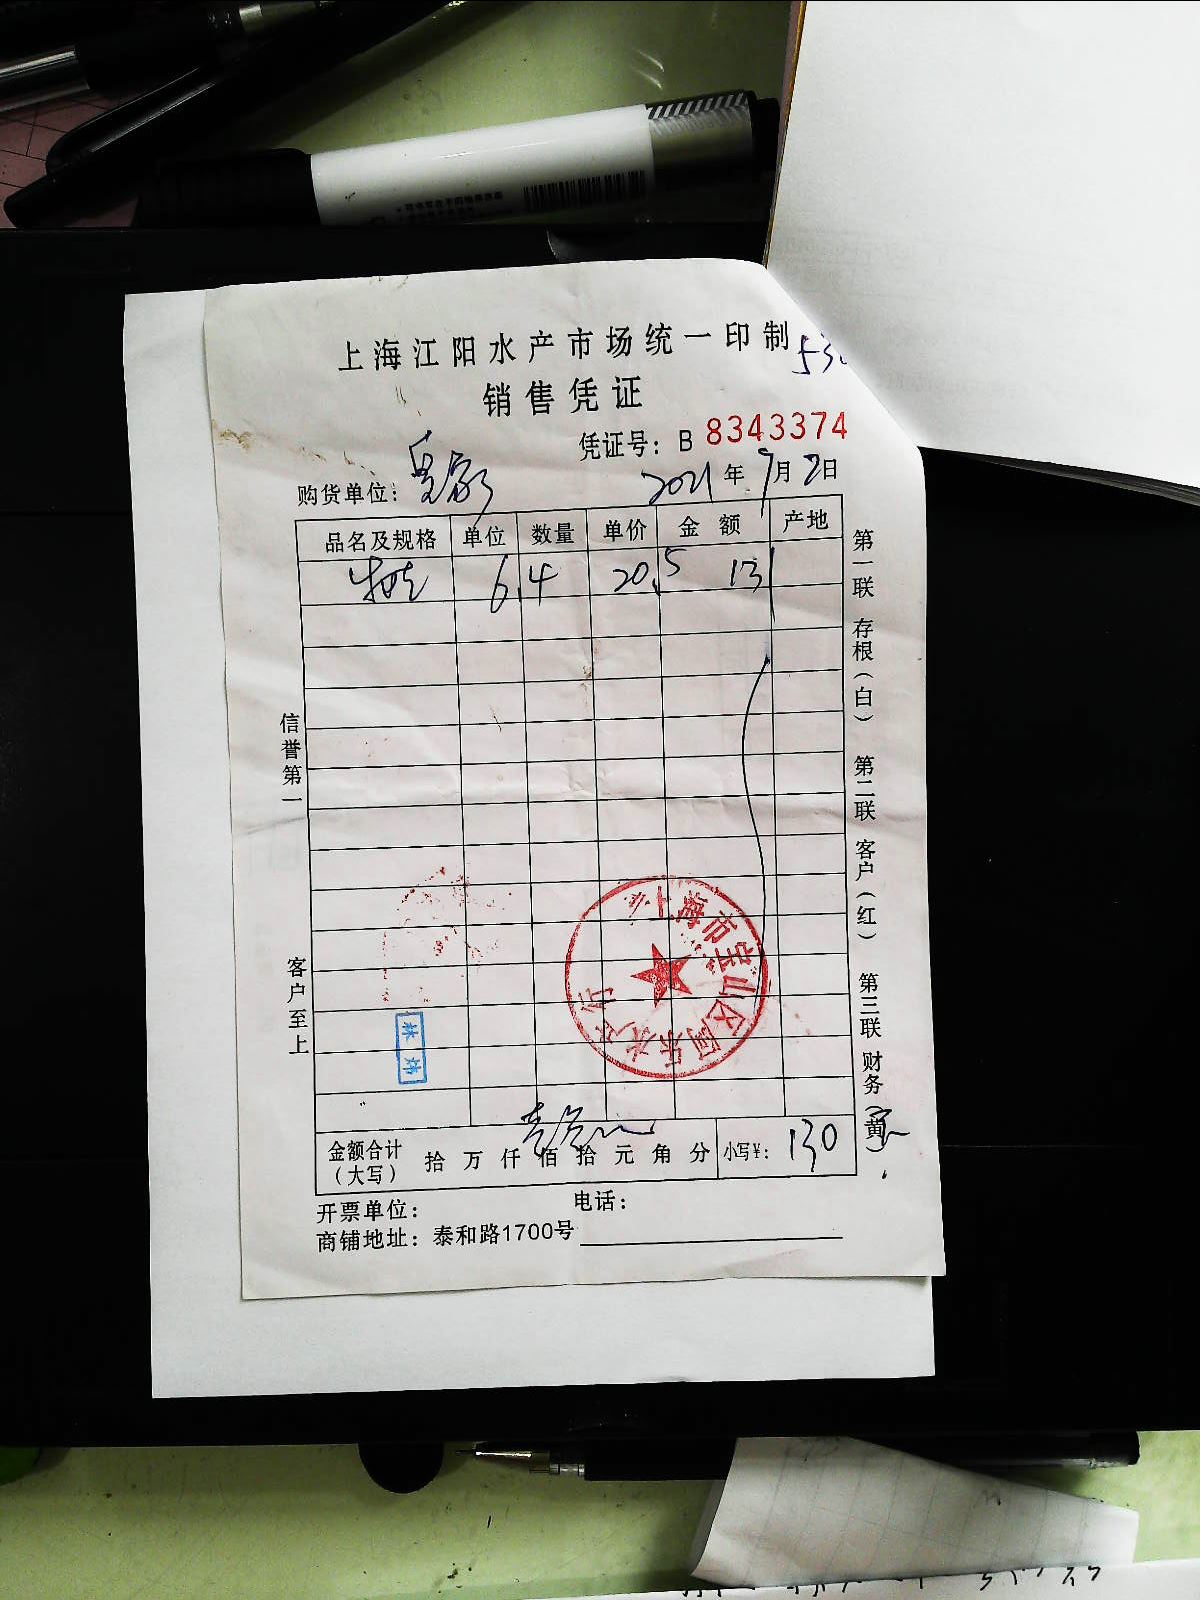 上海江阳水产市场统一印制
销售凭证
凭证号：B 8343374
购货单位： 2021年9月2日
品名及规格 单位 数量 单价 金额 产地
6.4 20.5 131
信誉第一
客户至上
第一联 存根（白） 第二联 客户（红） 第三联 财务（黄）
上海市宝山区阿乐水产行
林炜
金额合计（大写） 拾万仟佰拾元角分 小写¥：130
开票单位： 电话：
商铺地址：泰和路1700号